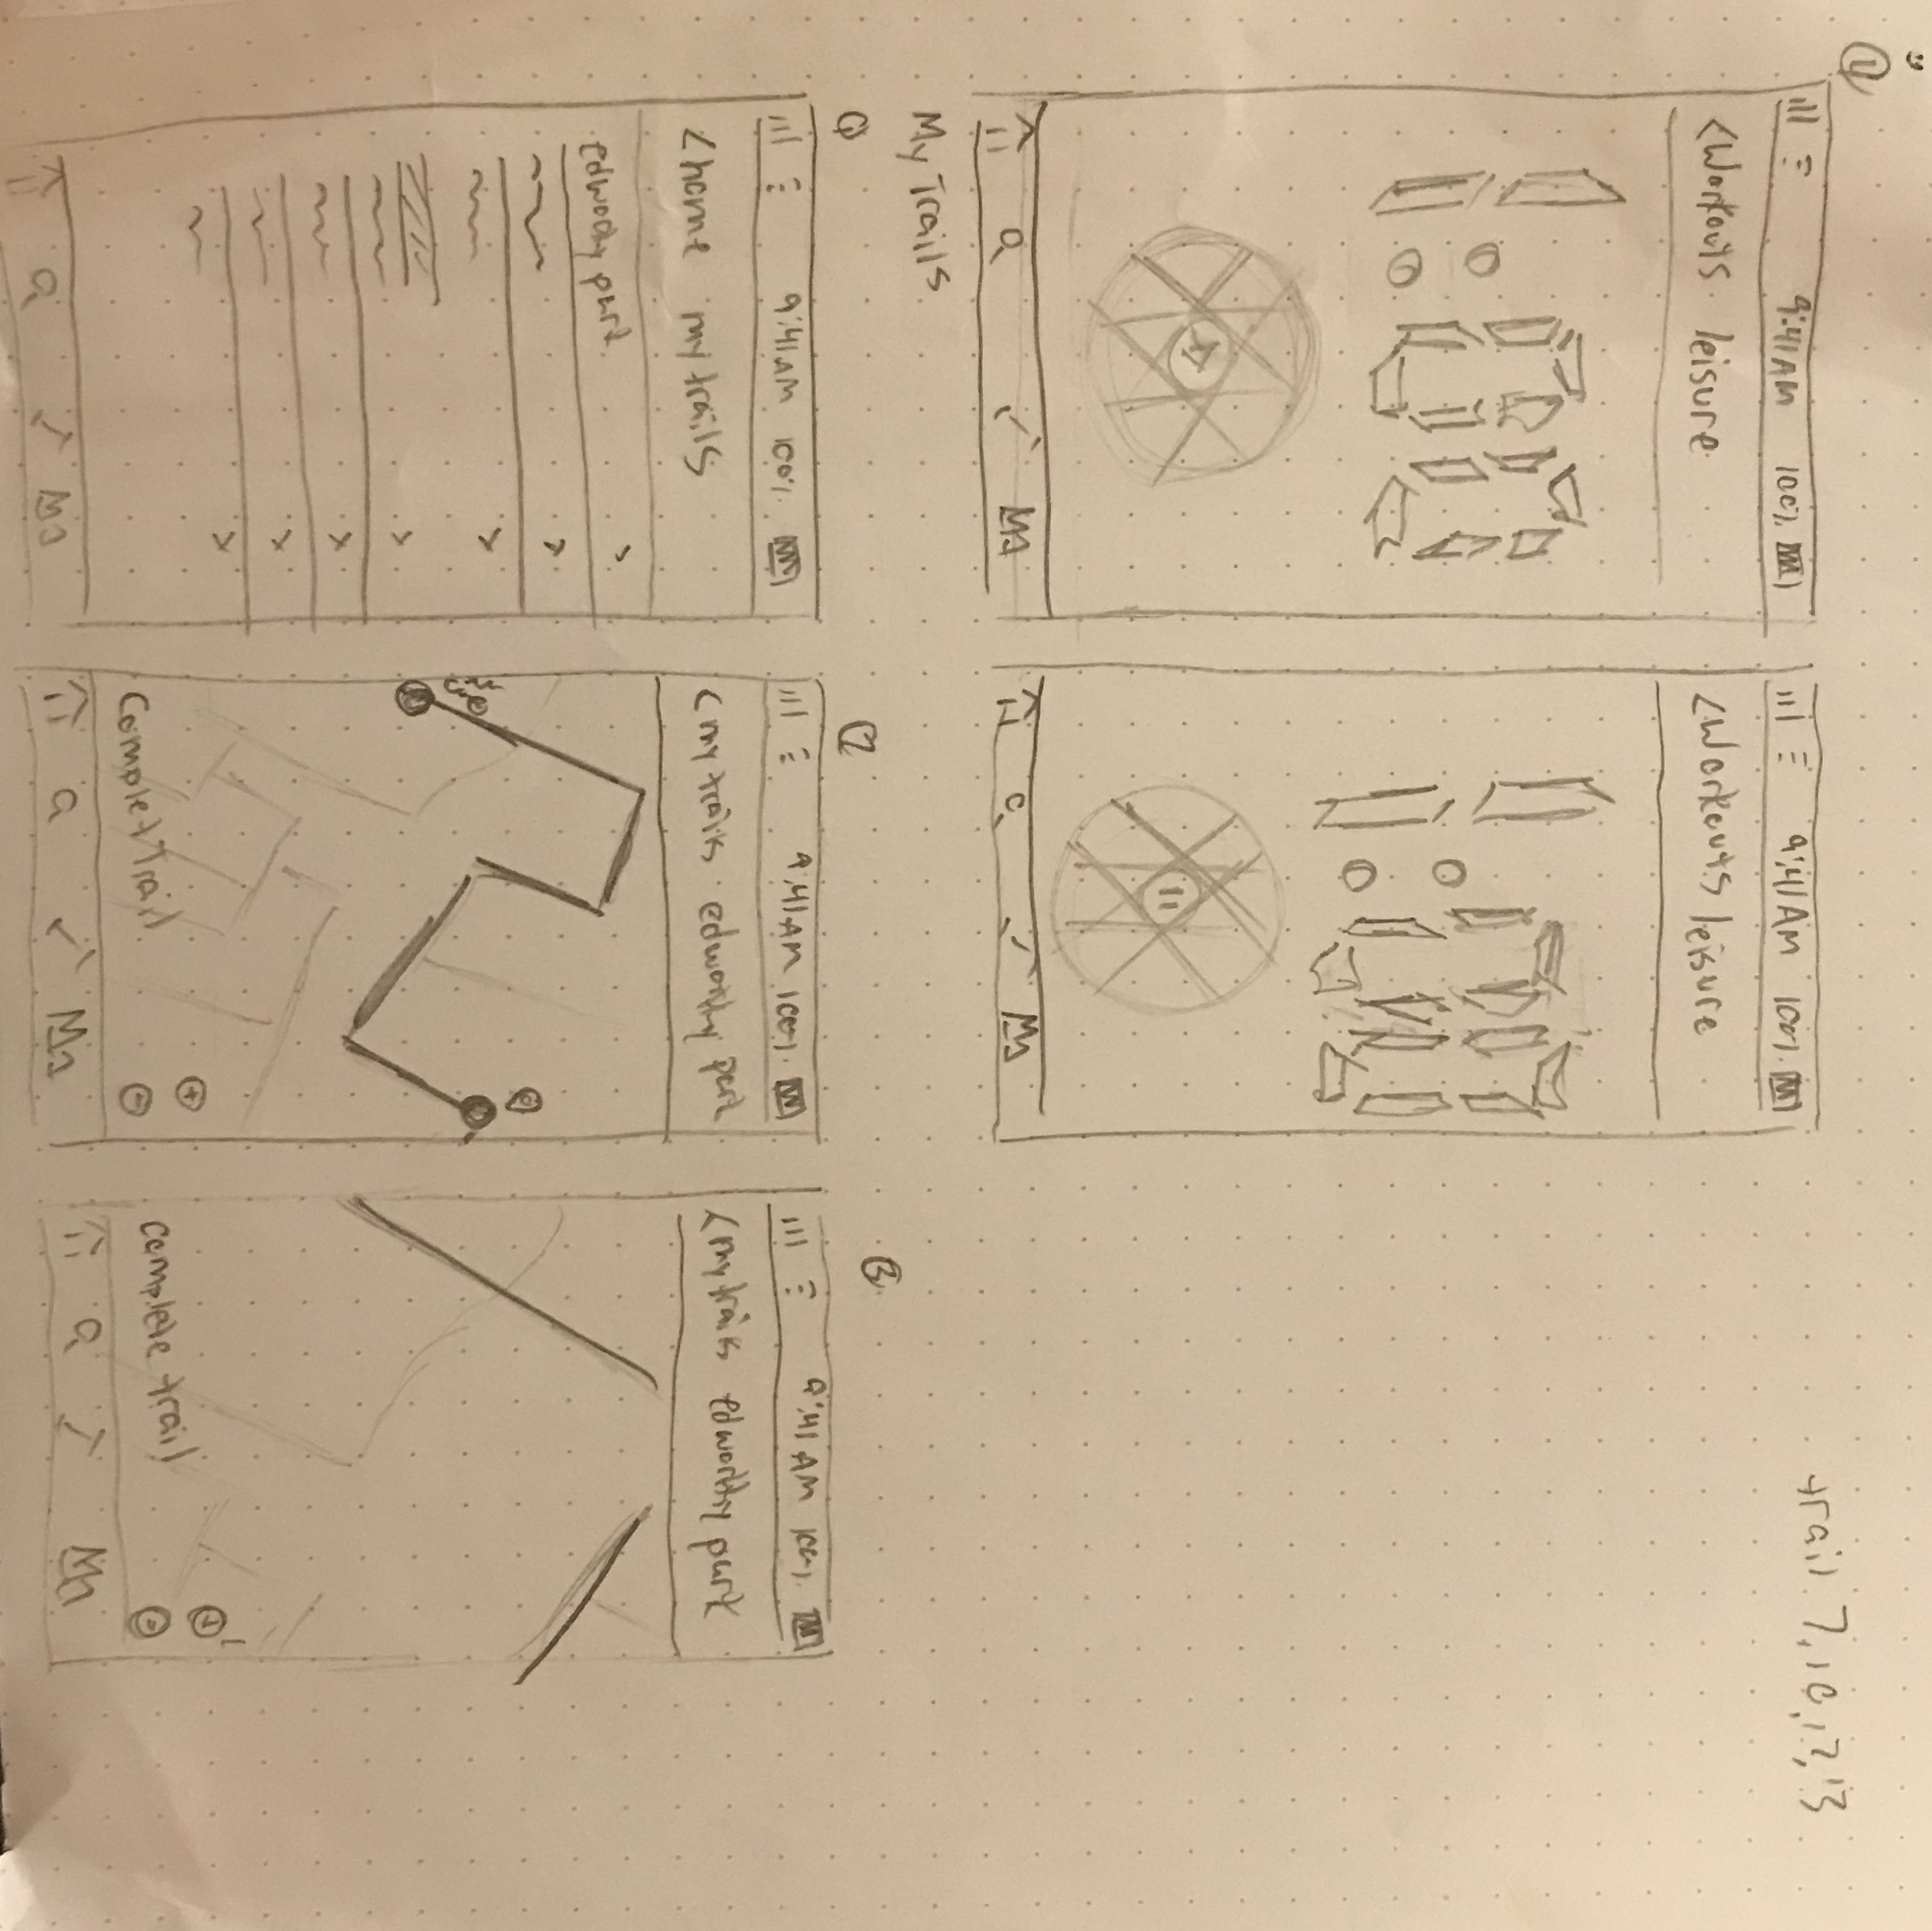 4
9:41AM 100%
<Workouts leisure
9:41AM 100%
<Workouts leisure
trail 7, 10, 12, 13
My Trails
1
9:41AM 100%
<home my trails
edworthy part
2
9:41AM 100%
<my trails edworthy part
Complet Trail
3
9:41 AM 100%
<my trails edworthy part
complete trail